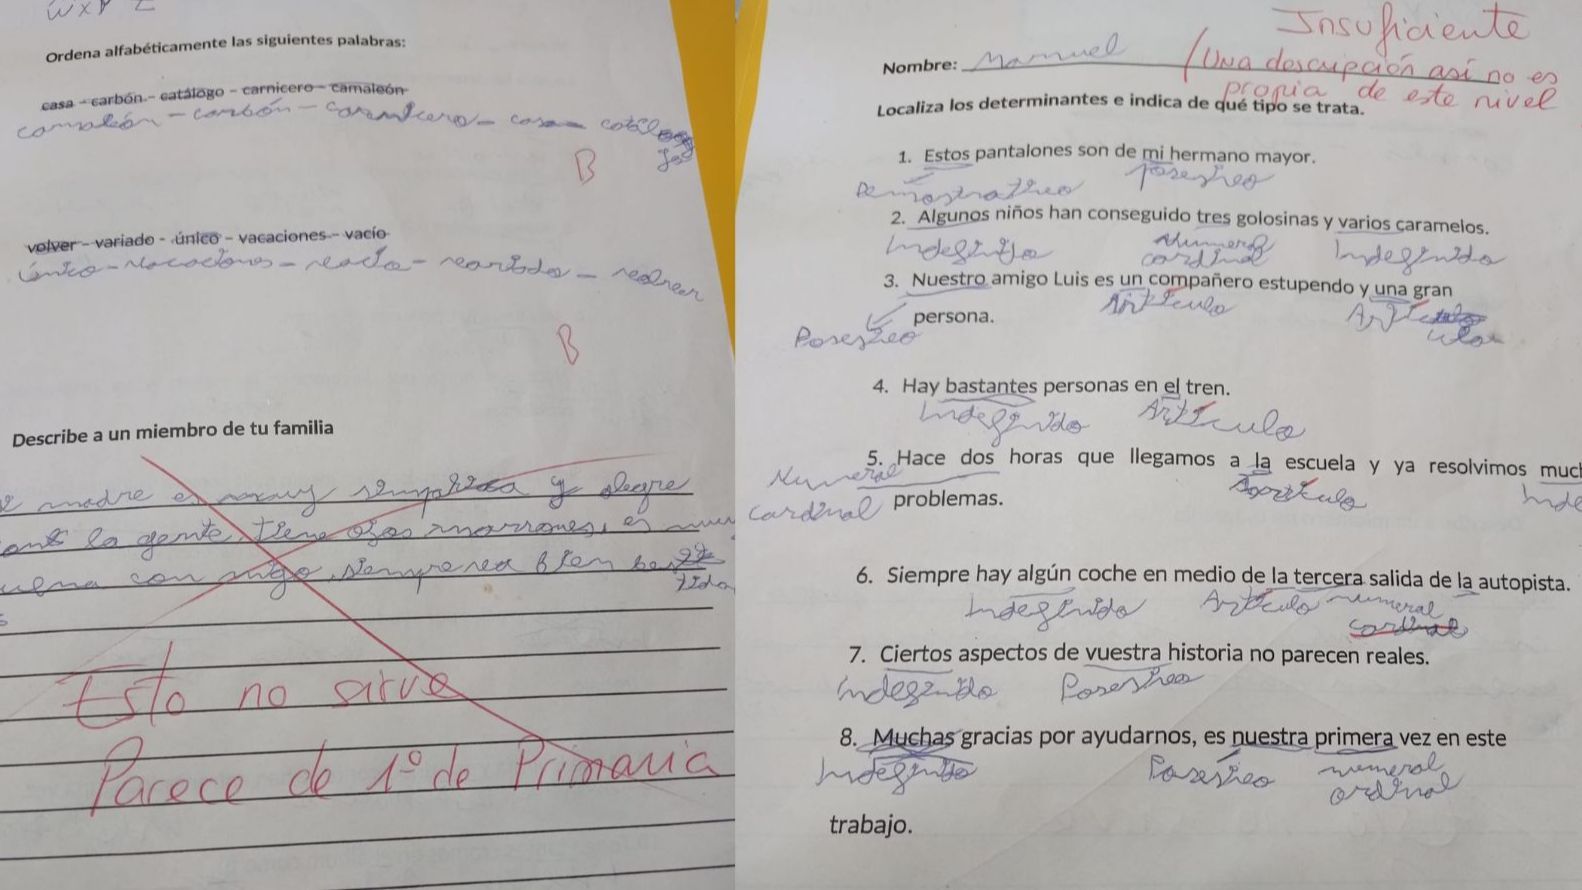 W X Y Z
Ordena alfabéticamente las siguientes palabras:
casa - carbón - catálogo - carnicero - camaleón
camaleón - carbón - carnicero - casa - catálogo
B
volver - variado - único - vacaciones - vacío
único - vacaciones - vacío - variado - volver
B
Describe a un miembro de tu familia
madre es muy simpática y alegre
la gente, tiene ojos marrones, es
con migo, siempre va bien
tida
Esto no sirve
Parece de 1º de Primaria
Insuficiente
Nombre: Manuel
(Una descripción así no es
propia de este nivel
Localiza los determinantes e indica de qué tipo se trata.
1. Estos pantalones son de mi hermano mayor.
Demostrativo posesivo
2. Algunos niños han conseguido tres golosinas y varios caramelos.
Indefinido Numeral Indefinido
cardinal
3. Nuestro amigo Luis es un compañero estupendo y una gran
Artículo
persona.
Posesivo
4. Hay bastantes personas en el tren.
Indefinido Artículo
5. Hace dos horas que llegamos a la escuela y ya resolvimos much
Numeral Artículo Inde
cardinal problemas.
6. Siempre hay algún coche en medio de la tercera salida de la autopista.
Indefinido Artículo numeral
cardinal
7. Ciertos aspectos de vuestra historia no parecen reales.
Indefinido Posesivo
8. Muchas gracias por ayudarnos, es nuestra primera vez en este
Indefinido Posesivo numeral
ordinal
trabajo.